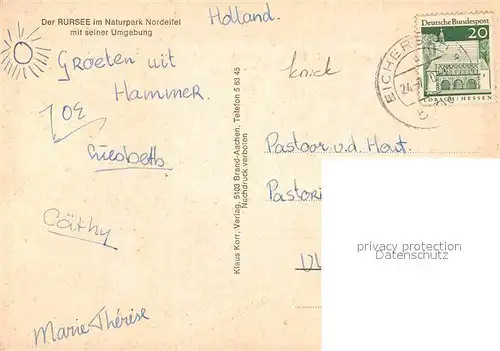 Der RURSEE im Naturpark Nordeifel
mit seiner Umgebung
Holland.
Groeten uit
Hammer.
Liesbeth
Cathy
Marie-Thérèse
Klaus Korr, Verlag, 5103 Brand-Aachen, Telefon 5 63 45
Nachdruck verboten
knick
Deutsche Bundespost
20
LORSCH/HESSEN
EICHER
Pastoor v.d. Hout.
Pastori
privacy protection
by ansichtskarten-center.de